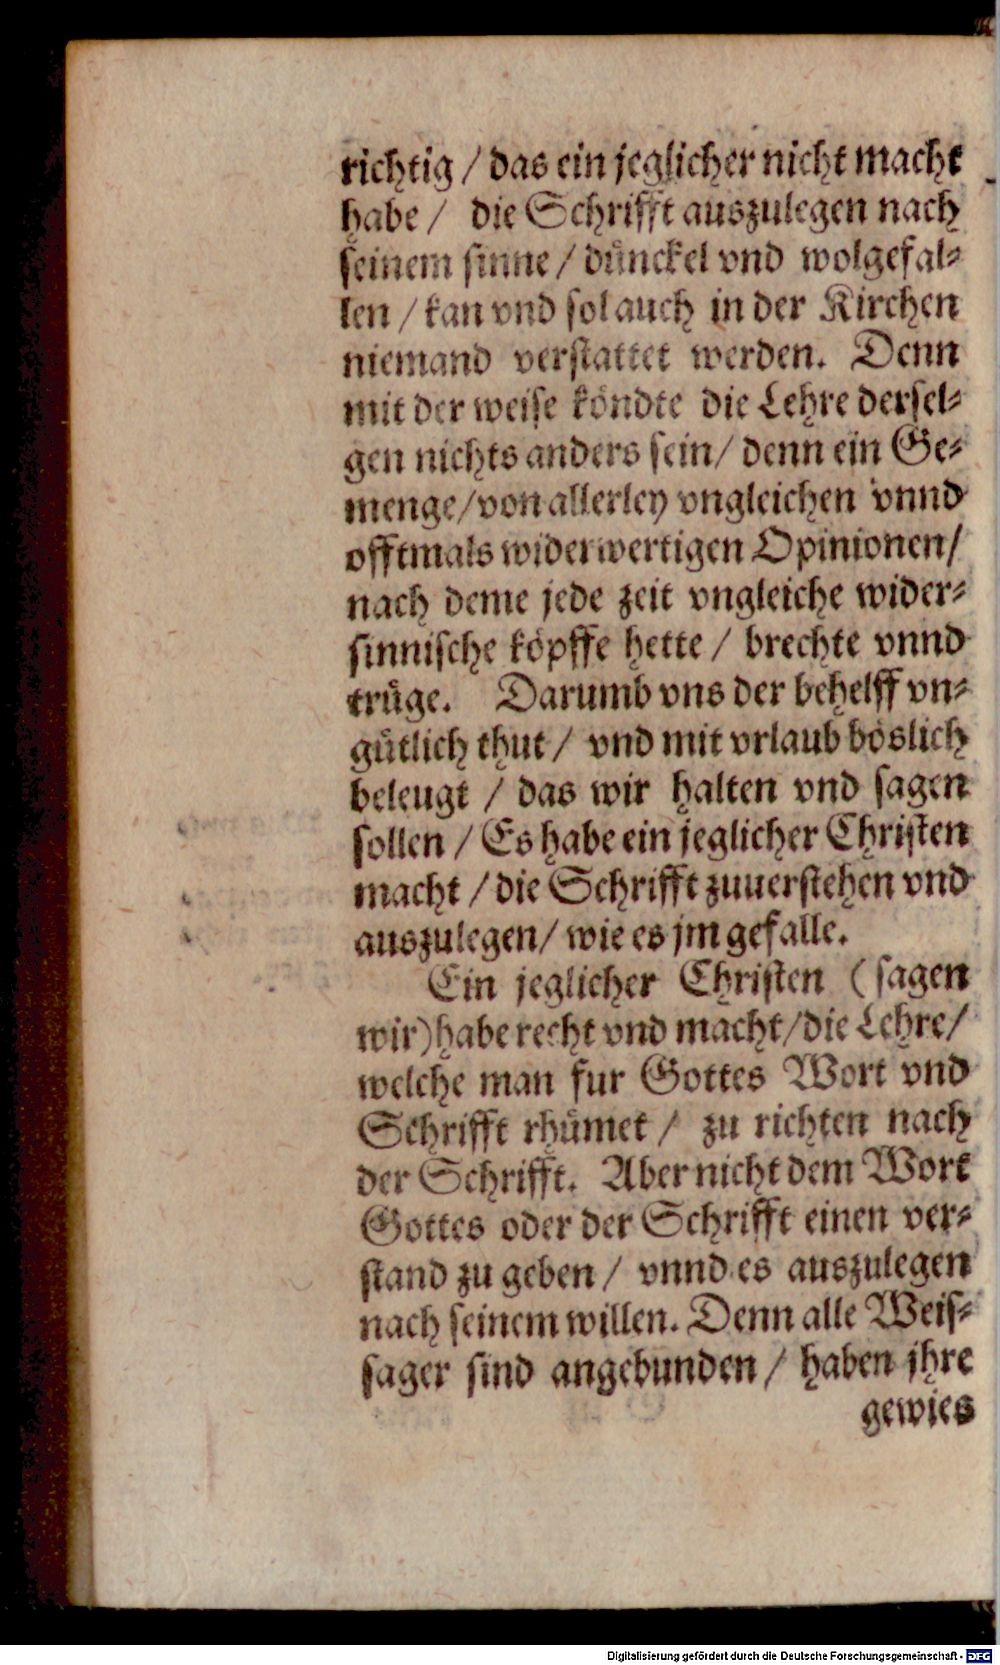 richtig / das ein jeglicher nicht macht
habe / die Schrifft auszulegen nach
seinem sinne / dünckel vnd wolgefal⸗
len / kan vnd sol auch in der Kirchen
niemand verstattet werden. Denn
mit der weise köndte die Lehre dersel⸗
gen nichts anders sein / denn ein Ge⸗
menge / von allerley vngleichen vnnd
offtmals widerwertigen Opinionen /
nach deme jede zeit vngleiche wider⸗
sinnische köpffe hette / brechte vnnd
trüge. Darumb vns der behelff vn⸗
gütlich thut / vnd mit vrlaub böslich
beleugt / das wir halten vnd sagen
sollen / Es habe ein jeglicher Christen
macht / die Schrifft zuuerstehen vnd
auszulegen / wie es jm gefalle.
Ein jeglicher Christen ( sagen
wir) habe recht vnd macht / die Lehre /
welche man fur Gottes Wort vnd
Schrifft rhümet / zu richten nach
der Schrifft. Aber nicht dem Wort
Gottes oder der Schrifft einen ver⸗
stand zu geben / vnnd es auszulegen
nach seinem willen. Denn alle Weis⸗
sager sind angebunden / haben jhre
gewies
Digitalisierung gefördert durch die Deutsche Forschungsgemeinschaft - DFG